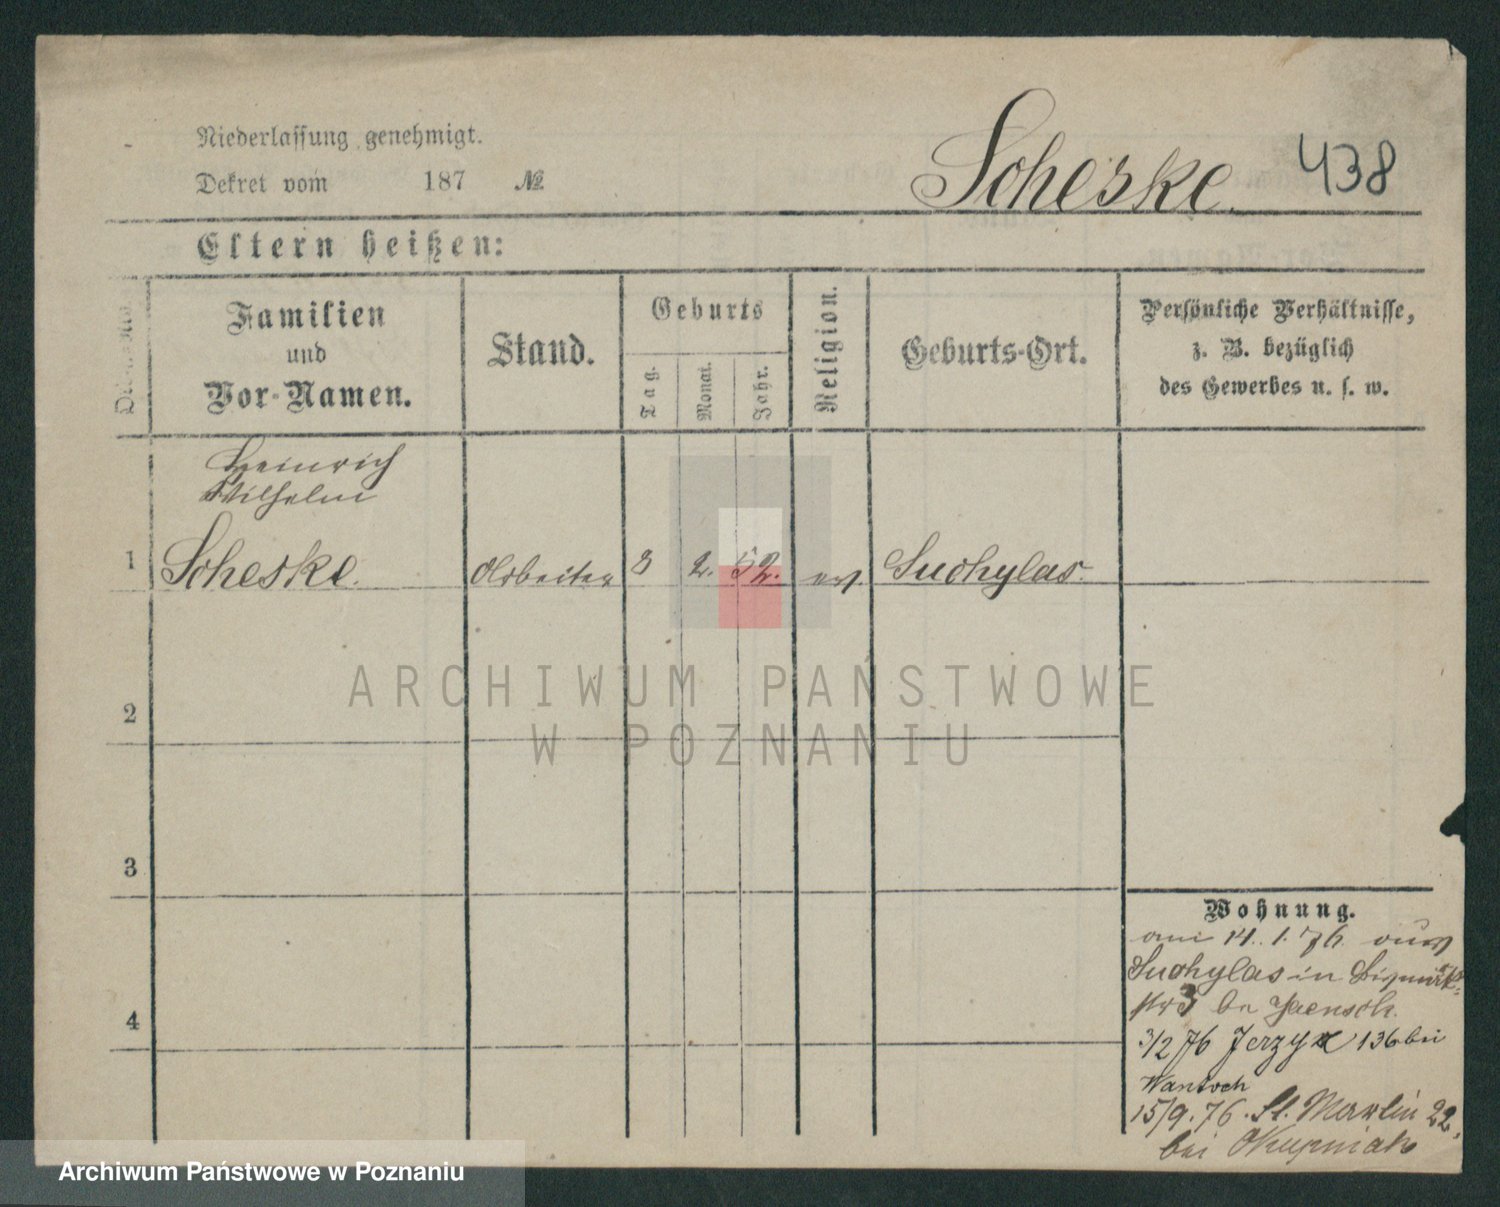 Niederlassung genehmigt.
Dekret vom 187 №
Scheske. 438
Eltern heißen:
Familien
und
Vor-Namen.
Stand.
Geburts
Tag.
Monat.
Jahr.
Religion.
Geburts-Ort.
Persönliche Verhältnisse,
z. B. bezüglich
des Gewerbes u. s. w.
Heinrich
Wilhelm
1 Scheske. Arbeiter 3 2. 52. ev. Suchylas.
2
3
4
Wohnung.
am 14. 1. 76. aus
Suchylas in Bismark-
str 3 bei Jaensch.
3/2 76 Jerzyce 136 bei
Wantoch
15/9. 76. St. Martin 22,
bei Okupniak
ARCHIWUM PAŃSTWOWE
W POZNANIU
Archiwum Państwowe w Poznaniu